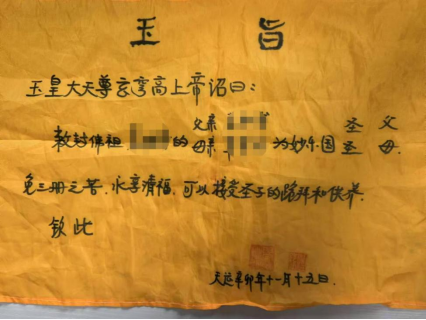 玉旨
玉皇大天尊玄穹高上帝诏曰：
敕封佛祖 的 父亲 母亲 为妙乐国 圣父 圣母.
免三册之苦.永享清福,可以接受圣子的跪拜和供养.
钦此
天运辛卯年十一月十五日.